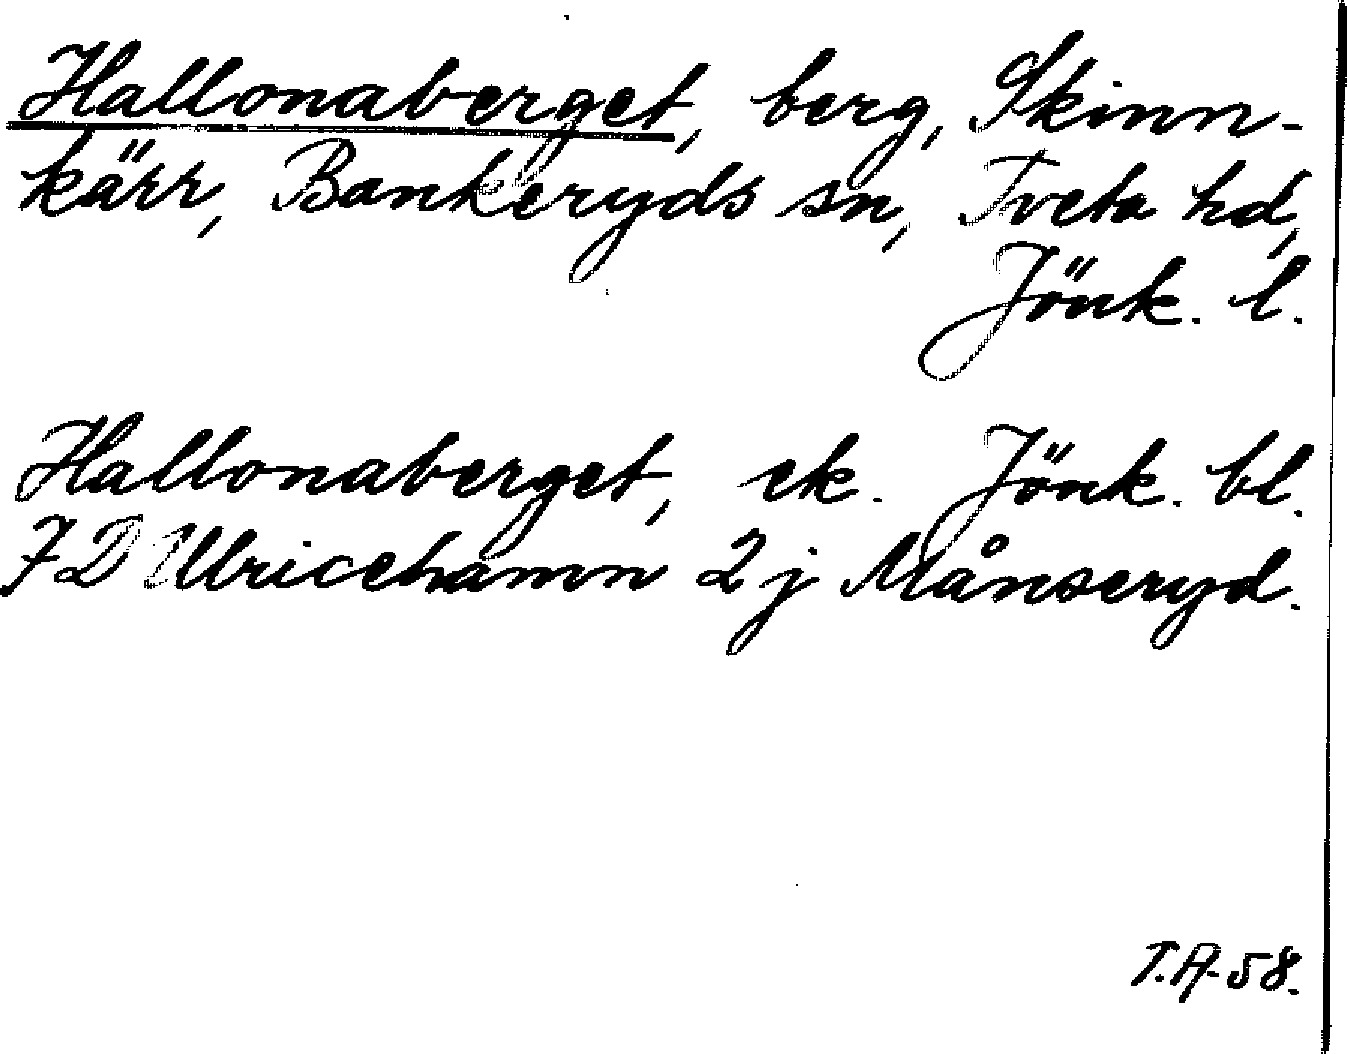 Hallonaberget, berg, Skinn-
kärr, Bankeryds sn, Tveta hd,
Jönk. l.
Hallonaberget, ek. Jönk. bl.
7D Ulricehamn 2j Månseryd.
T.A-58.